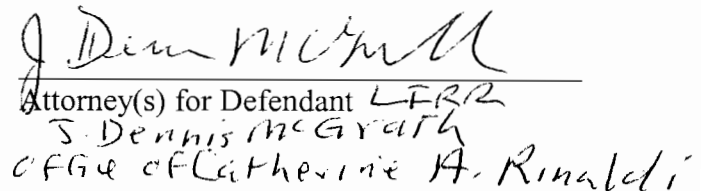 J Dennis McGrath
Attorney(s) for Defendant LIRR
J. Dennis McGrath
Office of Catherine A. Rinaldi